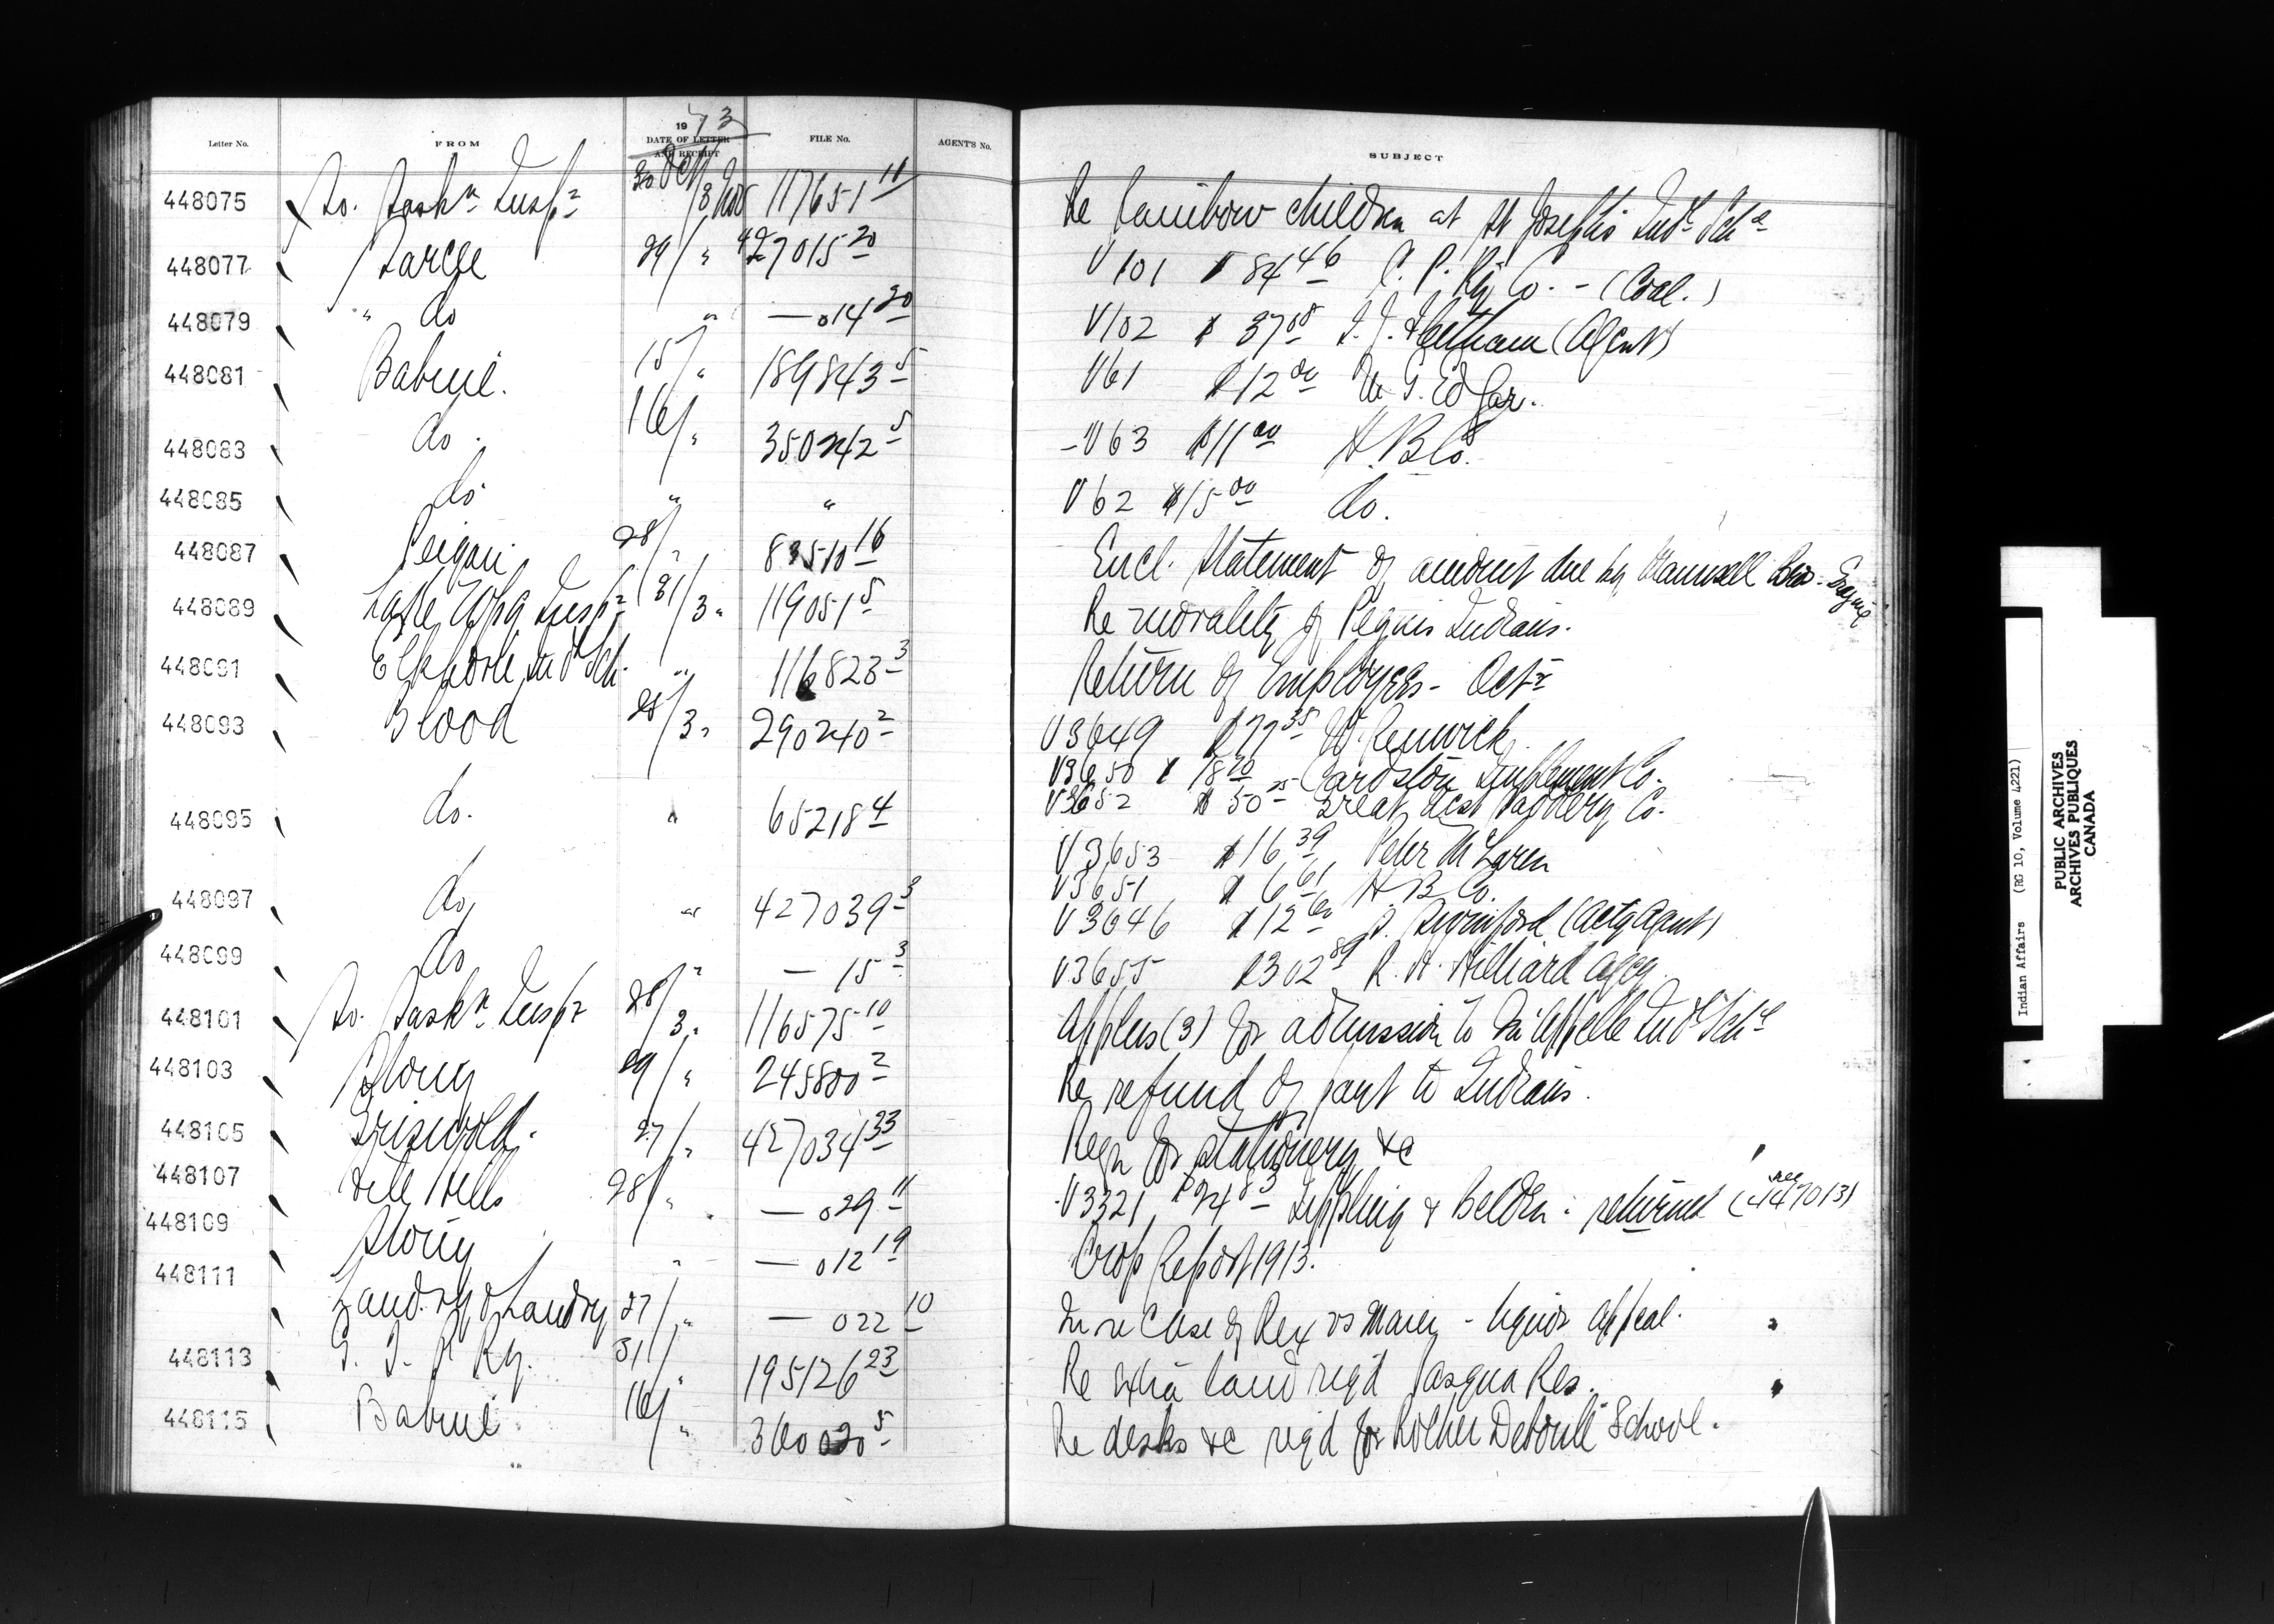 Letter No. FROM 1913 DATE OF LETTER AND RECEIPT FILE No. AGENT'S No. SUBJECT
448075 So. Saskn. Inspr 30 Oct/3 Nov 117651 11 Re Rainbow children at St Joseph's Indl Schl
448077 Sarcee 29/ " 427015 20 V101 $84 46 C. P. Ry Co. - (Coal.)
448079 " do " — 014 20 V102 $37 00 T. J. Fleetham (Agent)
448081 Babine. 15/ " 189843 5 V61 $12 00 W G. Edgar.
448083 do. 16/ " 350242 5 - V63 $11 00 H. B Co.
448085 do " " V62 $15 00 do.
448087 Peigan. 28/ " 83510 16 Encl. Statement of amount due by Maunsell Bros.
448089 Lake Wpg Inspr 31/3 " 119051 5 Re morality of Peguis Indians.
448091 Elkhorn Indl Sch. " 116823 3 Return of Employees - Octr
448093 Blood 28/3 " 290240 2 V3649 $77 35 W. Renwick
V3650 $18 20 Cardston Implement Co.
V3652 $50 25 Great West Saddlery Co.
448095 do. " 65218 4
V3653 $16 39 Peter McLaren
V3651 $6 61 H B Co.
448097 do " 427039 3 V3646 $12 (Actg Agent)
448099 do " — 15 3 V3655 $302 89 R. N. Hilliard Agcy
448101 So. Saskn. Inspr 28/3 " 116575 10 Applns (3) for admission to Qu'Appelle Indl Schl
448103 Stony 29/ " 245800 2 Re refund of part to Indians.
448105 Griswold. 27/ " 427034 33 Reqn for stationery &c
448107 File Hills 28/ " — 029 11 V3321 $24 83 & Belden: returned (see 447013)
448109 Stony " — 012 19 Crop Report 1913.
448111 Landry & Landry 27/ " — 022 10 In re Case of Rex vs - liquor appeal.
448113 G. T. P Ry. 31/ " 195126 23 Re extra land req'd Pasqua Res.
448115 Babine 16/ " 360020 5 Re desks &c req'd for Rocher Deboule School.
Indian Affairs (RG 10, Volume 4221)
PUBLIC ARCHIVES
ARCHIVES PUBLIQUES
CANADA